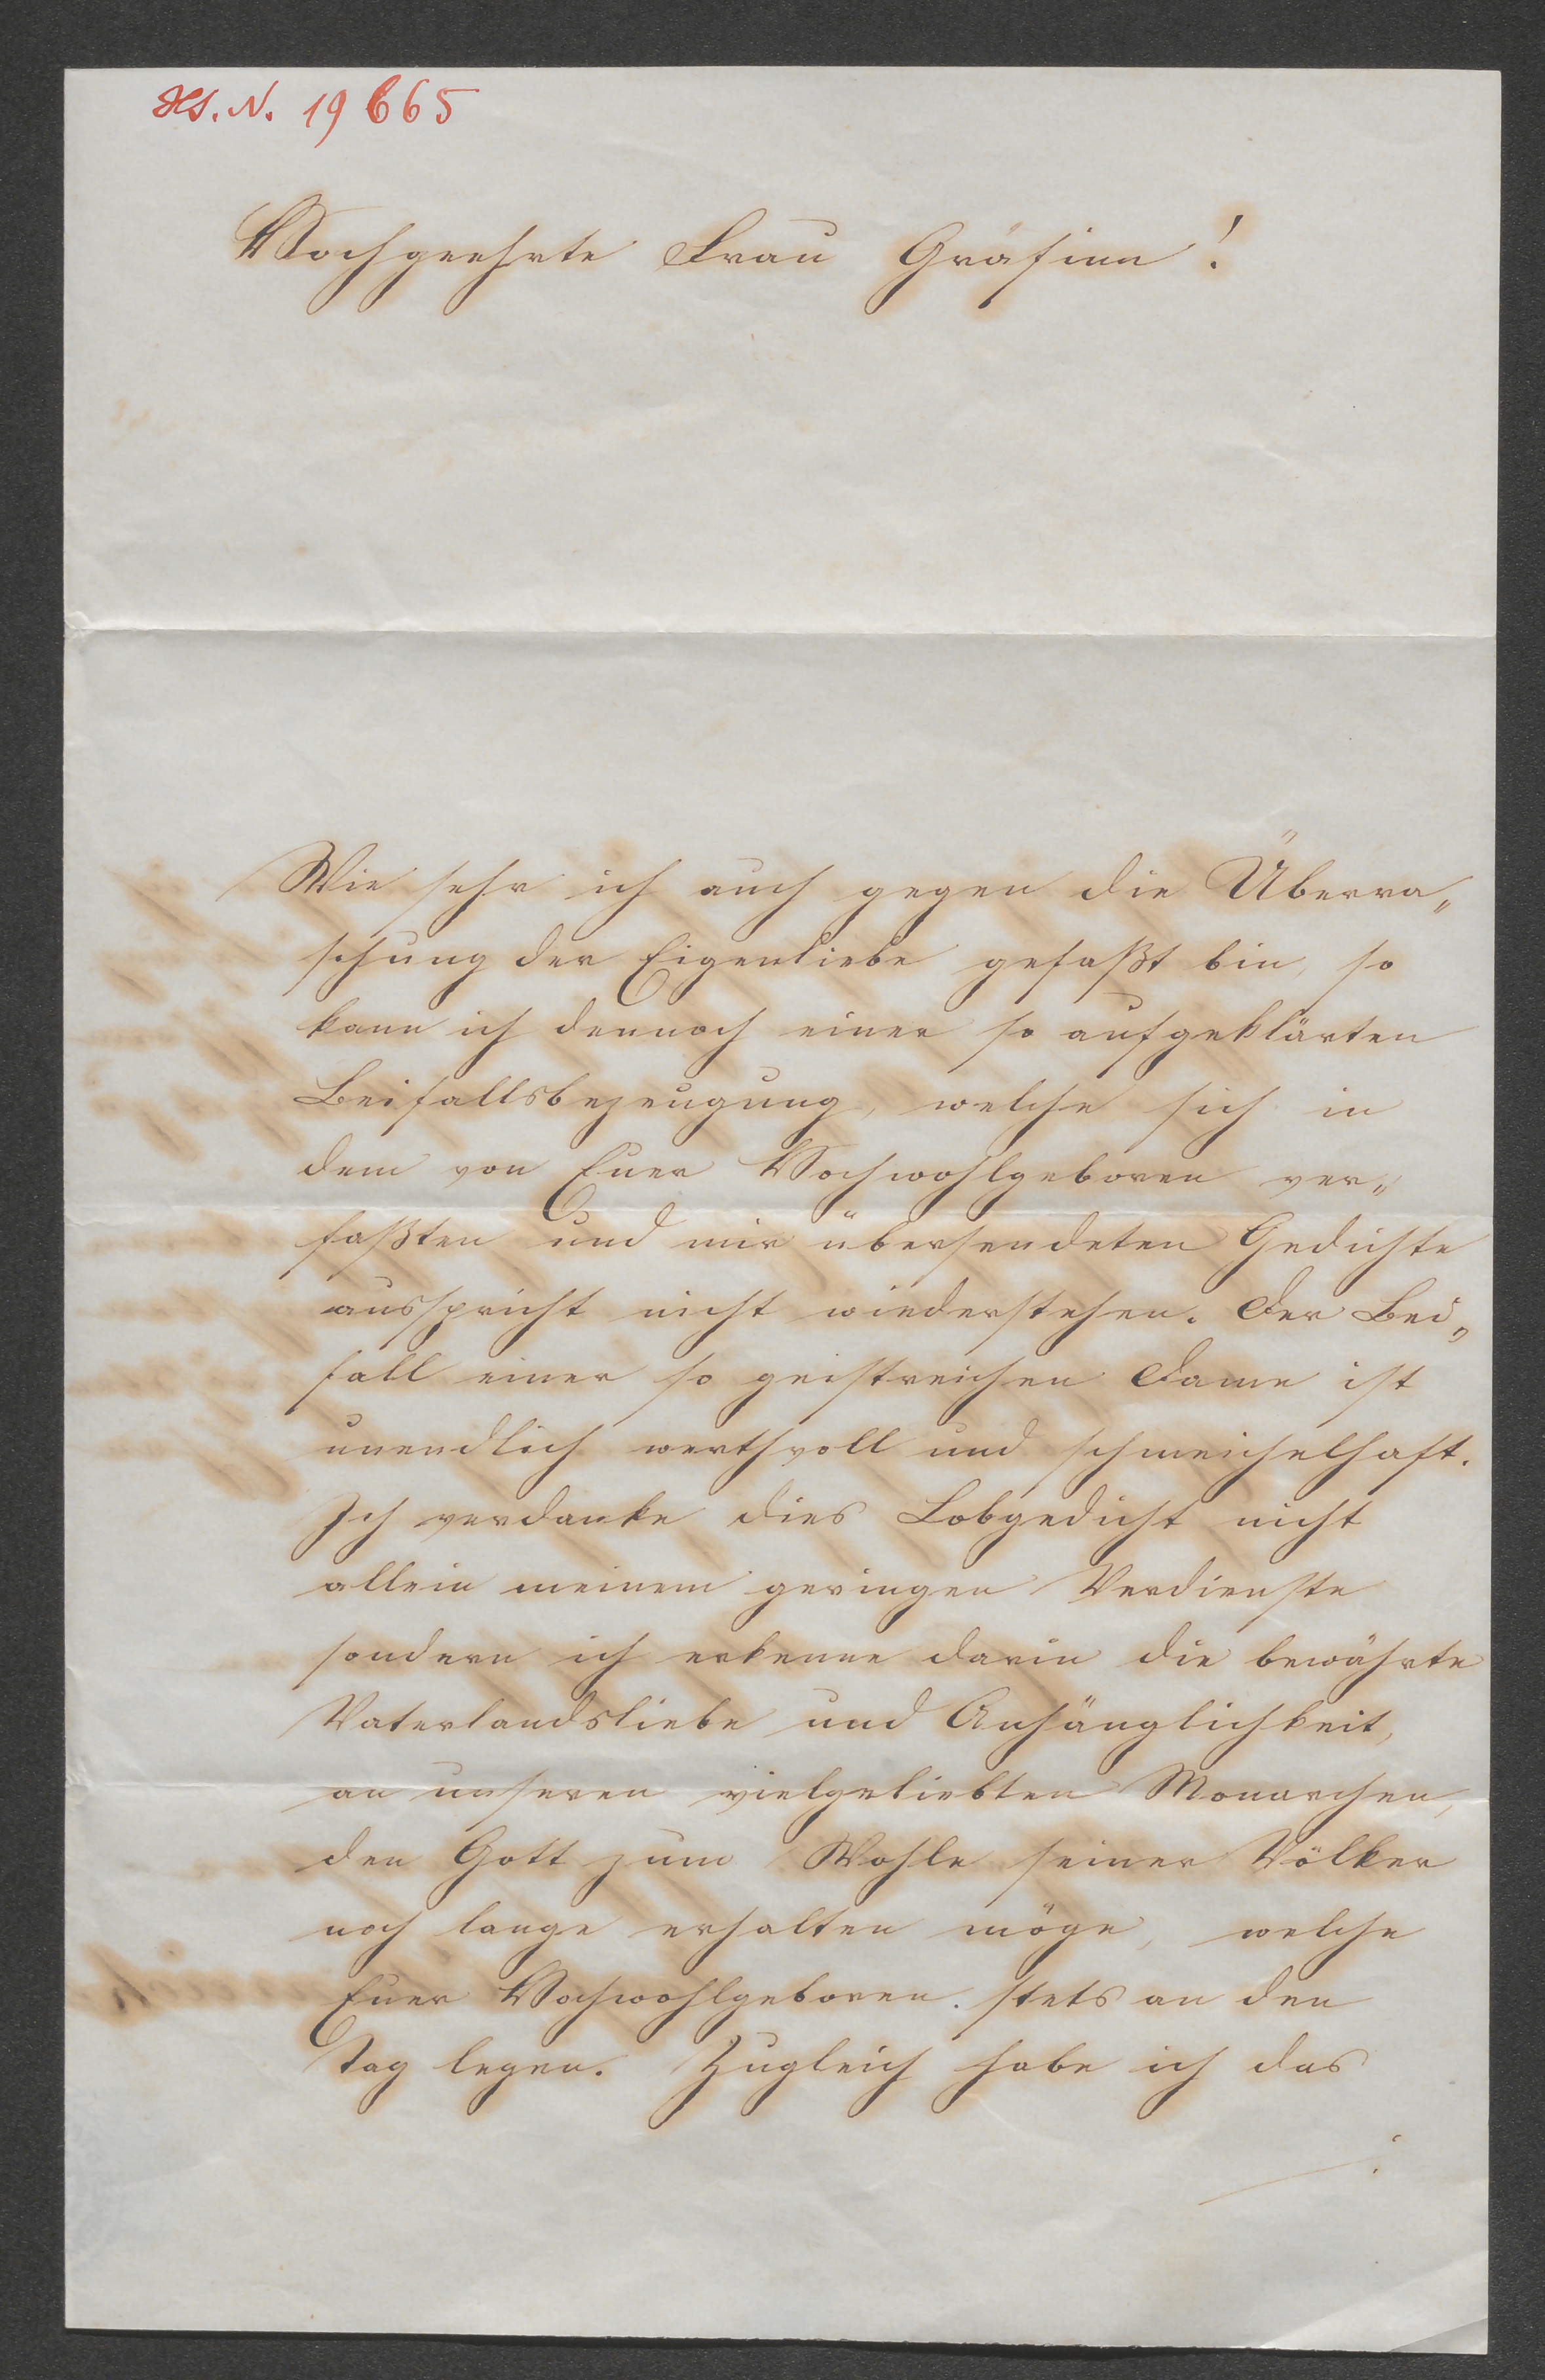 Hs. N. 19665
Hochgeehrte Frau Gräfinn!
Wie sehr ich auch gegen die Überra„
schung der Eigenliebe gefaßt bin, so
kann ich dennoch einer so aufgeklärten
Beifallsbezeugung, welche sich in
dem von Euer Hochwohlgeboren ver„
faßten und mir übersendeten Gedichte
ausspricht nicht wiederstehen. Der Bei„
fall einer so geistreichen Dame ist
unendlich werthvoll und schmeichelhaft.
Ich verdanke dies Lobgedicht nicht
allein meinem geringen Verdienste
sondern ich erkenne darin die bewährte
Vaterlandsliebe und Anhänglichkeit,
an unseren vielgeliebten Monarchen,
den Gott zum Wohle seiner Völker
noch lange erhalten möge, welche
Euer Hochwohlgeboren stets an den
Tag legen. Zugleich habe ich das